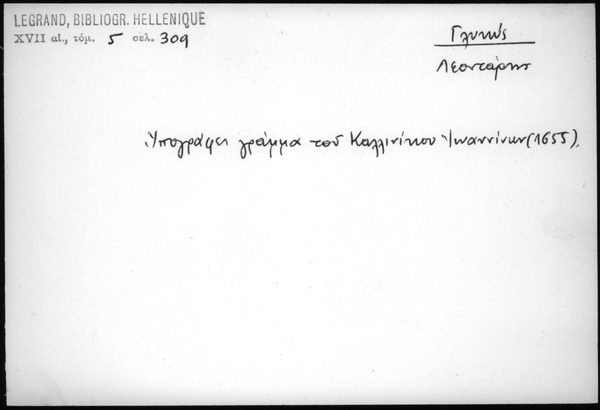 LEGRAND, BIBLIOGR. HELLENIQUE
XVII αἰ., τόμ. 5 σελ. 309
Γλυκύς
Λεοντάρης
Ὑπογράφει γράμμα τοῦ Καλλινίκου Ἰωαννίνων (1655).